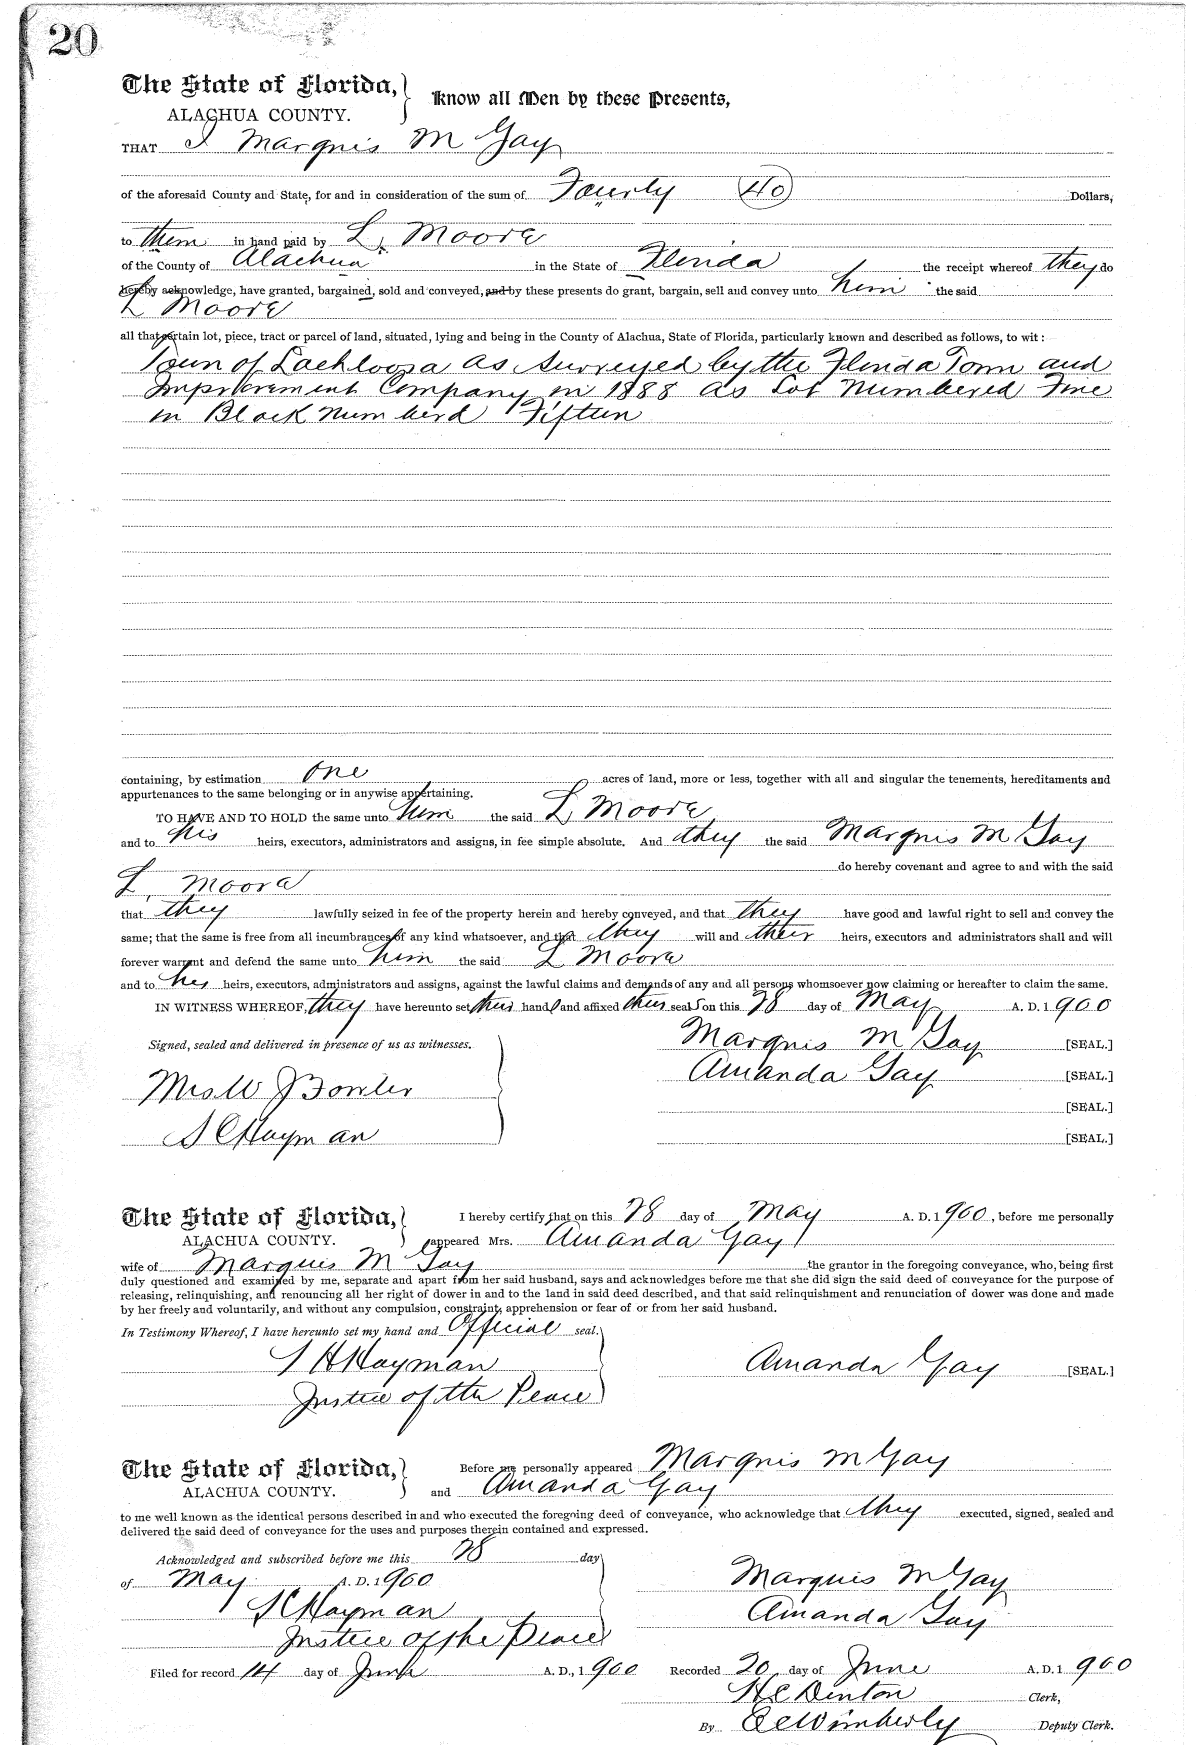 20
The State of Florida,
ALACHUA COUNTY.
Know all Men by these Presents,
THAT I Marquis M Gay
of the aforesaid County and State, for and in consideration of the sum of Fourty (40) Dollars,
to them in hand paid by L, Moore
of the County of Alachua in the State of Florida the receipt whereof they do
hereby acknowledge, have granted, bargained, sold and conveyed, and by these presents do grant, bargain, sell and convey unto him the said
L Moore
all that certain lot, piece, tract or parcel of land, situated, lying and being in the County of Alachua, State of Florida, particularly known and described as follows, to wit:
Town of Lochloosa as surveyed by the Florida Town and
Improvement Company in 1888 as Lot Numbered
in Block Numberd Fifteen
containing, by estimation one acres of land, more or less, together with all and singular the tenements, hereditaments and
appurtenances to the same belonging or in anywise appertaining.
TO HAVE AND TO HOLD the same unto him the said L, Moore
and to his heirs, executors, administrators and assigns, in fee simple absolute. And they the said Marquis M Gay
do hereby covenant and agree to and with the said
L, Moore
that they lawfully seized in fee of the property herein and hereby conveyed, and that they have good and lawful right to sell and convey the
same; that the same is free from all incumbrances of any kind whatsoever, and that they will and their heirs, executors and administrators shall and will
forever warrant and defend the same unto him the said L Moore
and to his heirs, executors, administrators and assigns, against the lawful claims and demands of any and all persons whomsoever now claiming or hereafter to claim the same.
IN WITNESS WHEREOF, they have hereunto set their hand and affixed their seals on this 28 day of May A. D. 1900
Signed, sealed and delivered in presence of us as witnesses.
Marquis M Gay [SEAL.]
Amanda Gay [SEAL.]
Mrs W J Fowler
[SEAL.]
S C Hayman
[SEAL.]
The State of Florida,
ALACHUA COUNTY.
I hereby certify that on this 28 day of May A. D. 1900, before me personally
appeared Mrs. Amanda Gay
wife of Marquis M Gay the grantor in the foregoing conveyance, who, being first
duly questioned and examined by me, separate and apart from her said husband, says and acknowledges before me that she did sign the said deed of conveyance for the purpose of
releasing, relinquishing, and renouncing all her right of dower in and to the land in said deed described, and that said relinquishment and renunciation of dower was done and made
by her freely and voluntarily, and without any compulsion, constraint, apprehension or fear of or from her said husband.
In Testimony Whereof, I have hereunto set my hand and Official seal.
S H Hayman
Amanda Gay [SEAL.]
Justice of the Peace
The State of Florida,
ALACHUA COUNTY.
Before me personally appeared Marquis M Gay
and Amanda Gay
to me well known as the identical persons described in and who executed the foregoing deed of conveyance, who acknowledge that they executed, signed, sealed and
delivered the said deed of conveyance for the uses and purposes therein contained and expressed.
Acknowledged and subscribed before me this 28 day
of May A. D. 1900
Marquis M Gay
S C Hayman
Amanda Gay
Justice of the Peace
Filed for record 14 day of June A. D., 1900 Recorded 20 day of June A. D. 1900
H C Denton Clerk,
By Wimberly Deputy Clerk.